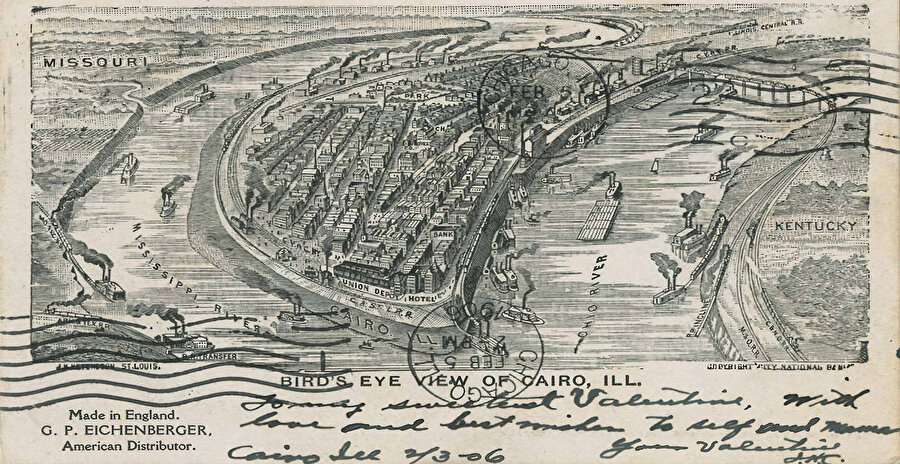 MISSOURI
ILLINOIS CENTRAL R.R.
PARK
CHICAGO
FEB 5
KENTUCKY
BANK
LEVEE
MISSISSIPPI RIVER
UNION DEPOT
HOTEL
OHIO RIVER
CAIRO
R.R. TRANSFER
ST. LOUIS.
CHICAGO
FEB 5
PM
1906
COPYRIGHT CITY NATIONAL BANK
BIRD'S EYE VIEW OF CAIRO, ILL.
Made in England.
G. P. EICHENBERGER,
American Distributor.
To my sweetest Valentine, with
love and best wishes to self and mama
Your Valentine
Cairo Ill 2/3-06